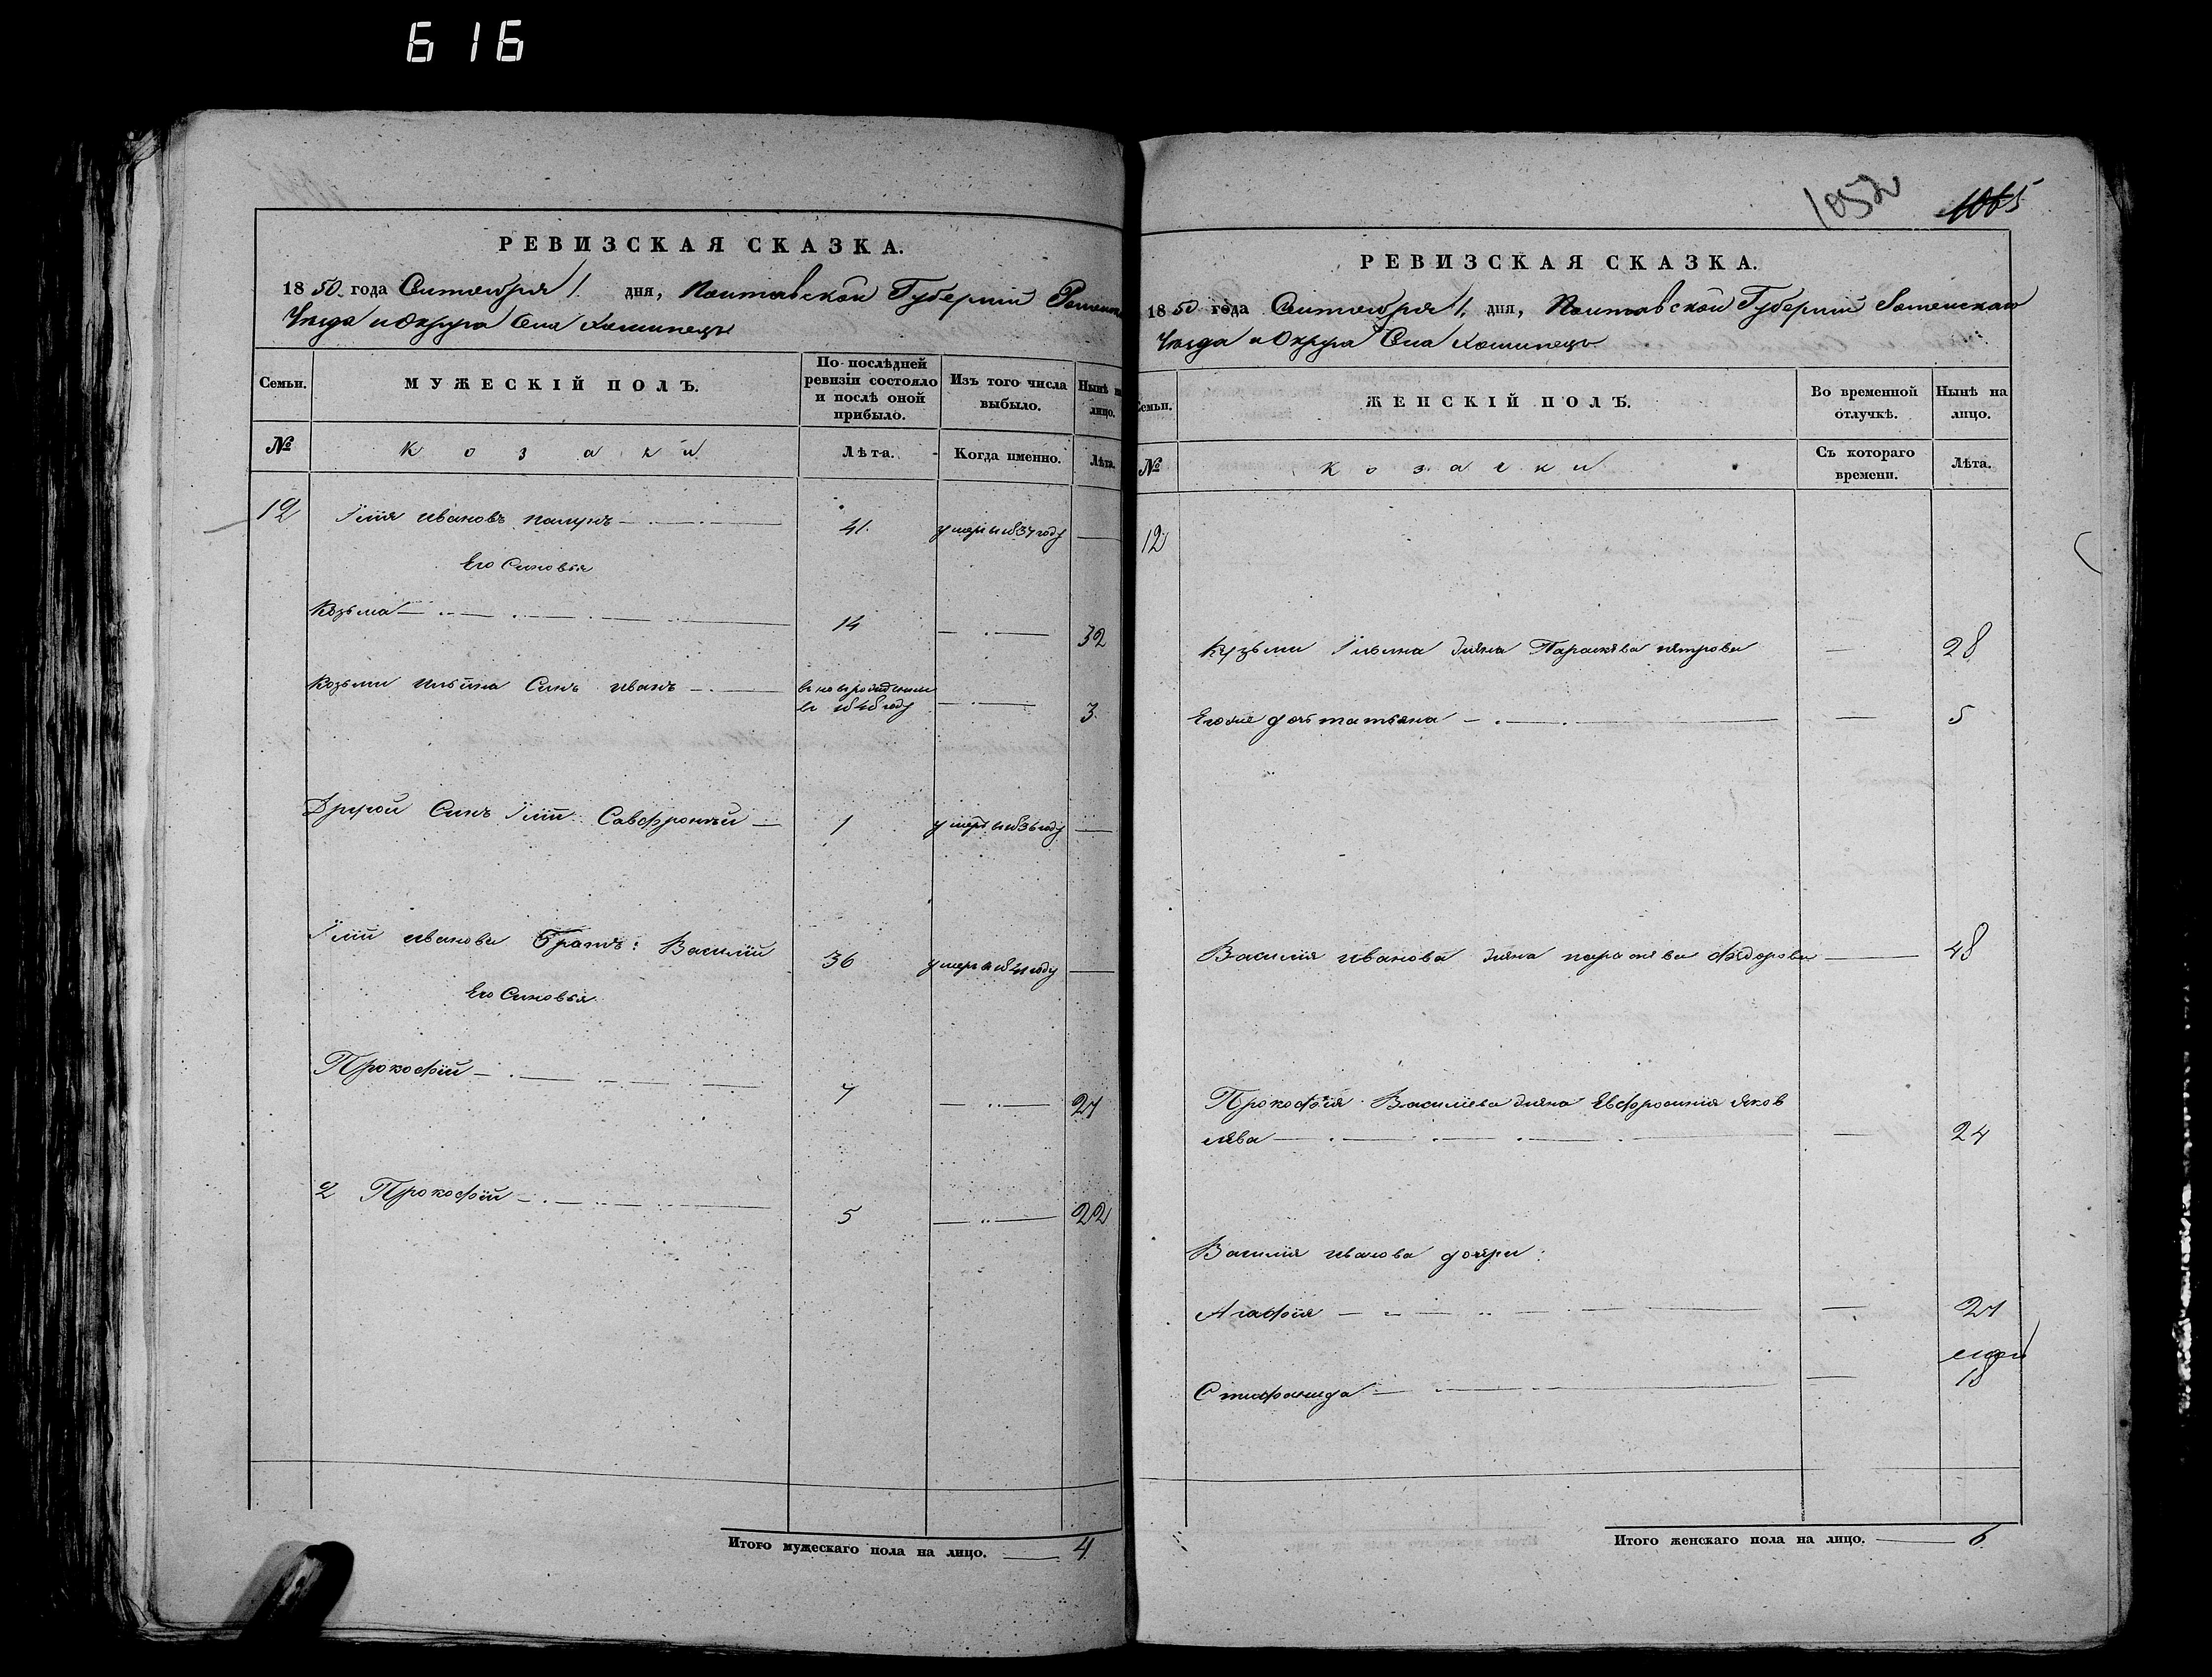 616
РЕВИЗСКАЯ СКАЗКА.
1850 года Сентября 1 дня, Полтавской Губернии
Уезда и Округа Села
Семьи.
МУЖЕСКІЙ ПОЛЪ.
По послѣдней ревизіи состояло и послѣ оной прибыло.
Изъ того числа выбыло.
Нынѣ на лицо.
№
козаки
Лѣта.
Когда именно.
Лѣта.
12
Илія Ивановъ 41. умеръ 1837 году
Его Синовья
Козьма 14 32
Козьми Ильина Синъ Иванъ 3
въ 1848 году
Другой Синъ Иліи: Савфроній 1 умеръ 1836 году
Иліи Иванова Братъ: Василій 36 умеръ в 1841 году
Его Синовья
Прокофій 7 24
2 Прокофій 5 22
Итого мужескаго пола на лицо. 4
1052
1065
РЕВИЗСКАЯ СКАЗКА.
1850 года Сентября 1. дня, Полтавской Губерніи Роменскаго
Уезда и Округа Села
Семьи.
ЖЕНСКІЙ ПОЛЪ.
Во временной отлучкѣ.
Нынѣ на лицо.
№
козачки
Съ котораго времени.
Лѣта.
12
Кузьми Ильина жена Параскева Петрова 28
Егоже дочь татьяна 5
Василія Иванова жена параскева Федорова 48
Прокофія Василіева жена Евфросинія Яков
лева 24
Василія Иванова дочери:
Агафія 21
Стефанида 18
Итого женскаго пола на лицо. 6